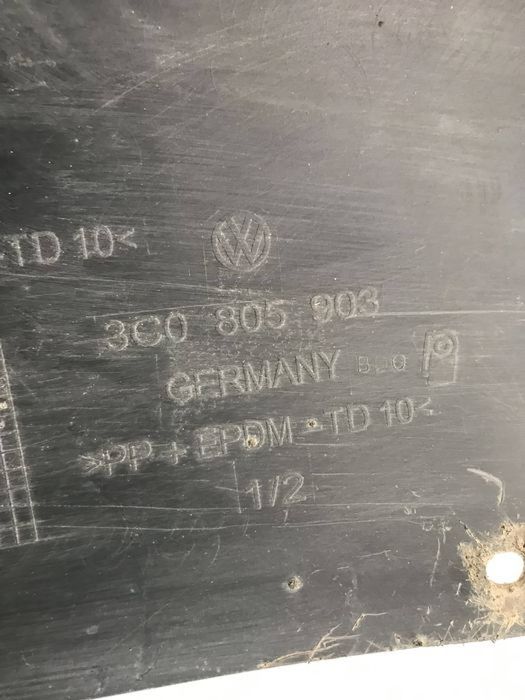 -TD 10<
3C0 805 903
GERMANY
>PP + EPDM -TD 10<
1/2